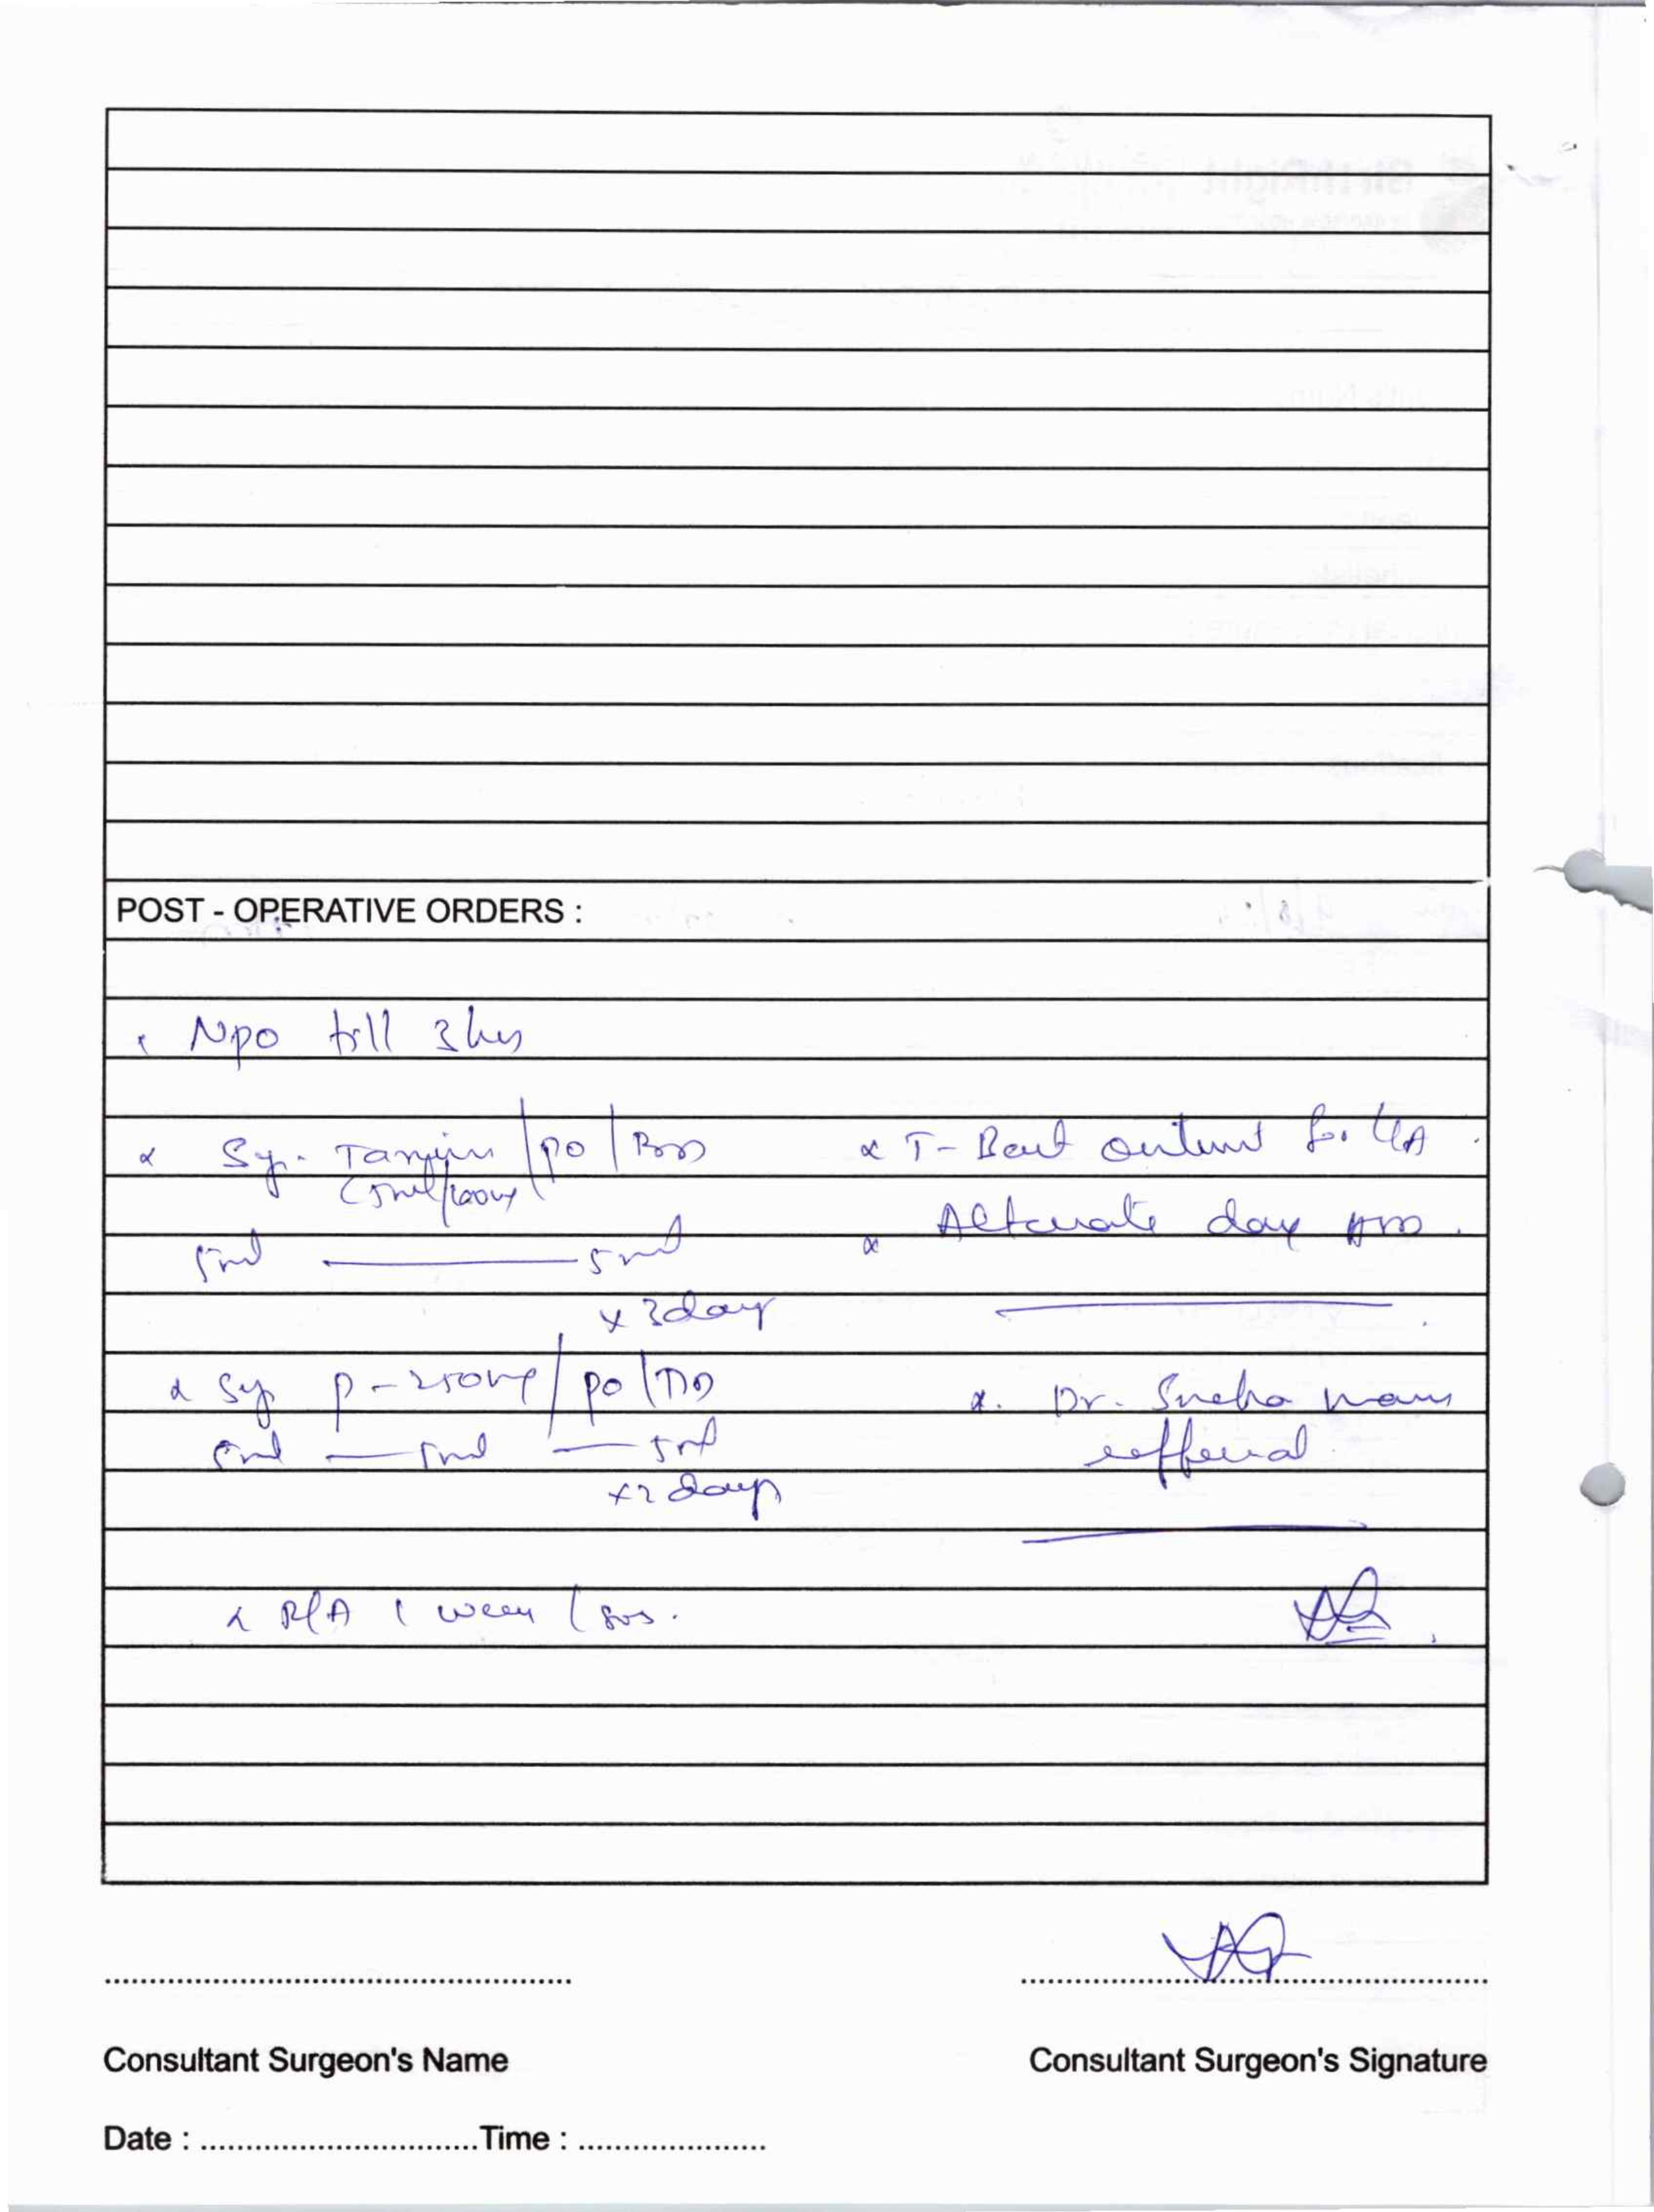 POST - OPERATIVE ORDERS :
Npo till 3 hrs
Sy. Taxim / po / BD
(5ml/100mg)
5ml — 5ml
x 3 day
Sy p - 250mg / po / TID
5ml — 5ml — 5ml
x 2 days
R/A 1 week / sos.
T-Bact ointment for L/A
Alternate day
Dr. Sneha mam
refferal
Consultant Surgeon's Name
Consultant Surgeon's Signature
Date : ............................... Time : .....................